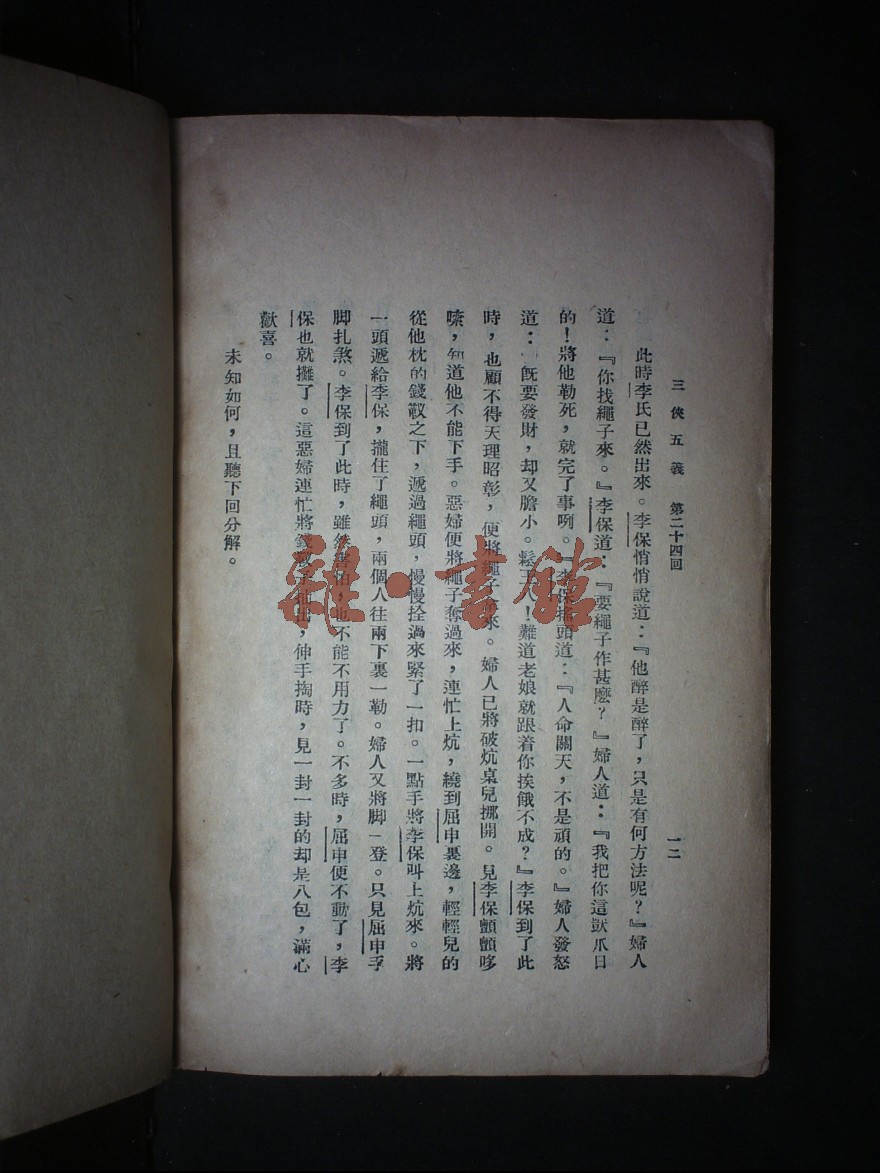 三俠五義　第二十四回
一二
此時李氏已然出來。李保悄悄說道：『他醉是醉了，只是有何方法呢？』婦人
道：『你找繩子來。』李保道：『要繩子作甚麼？』婦人道：『我把你這獃爪日
的！將他勒死，就完了事咧。』李保搖頭道：『人命關天，不是頑的。』婦人發怒
道：『旣要發財，却又膽小。鬆王八！難道老娘就跟着你挨餓不成？』李保到了此
時，也顧不得天理昭彰，便將繩子拿來。婦人已將破炕桌兒挪開。見李保顫顫哆
嗦，知道他不能下手。惡婦便將繩子奪過來，連忙上炕，繞到屈申裏邊，輕輕兒的
從他枕的錢㪚之下，遞過繩頭，慢慢拴過來緊了一扣。一點手將李保叫上炕來。將
一頭遞給李保，攏住了繩頭，兩個人往兩下裏一勒。婦人又將脚一登。只見屈申手
脚扎煞。李保到了此時，雖然害怕，也不能不用力了。不多時，屈申便不動了，李
保也就攤了。這惡婦連忙將錢㪚子抽出，伸手掏時，見一封一封的却是八包，滿心
歡喜。
未知如何，且聽下回分解。
雜·書館